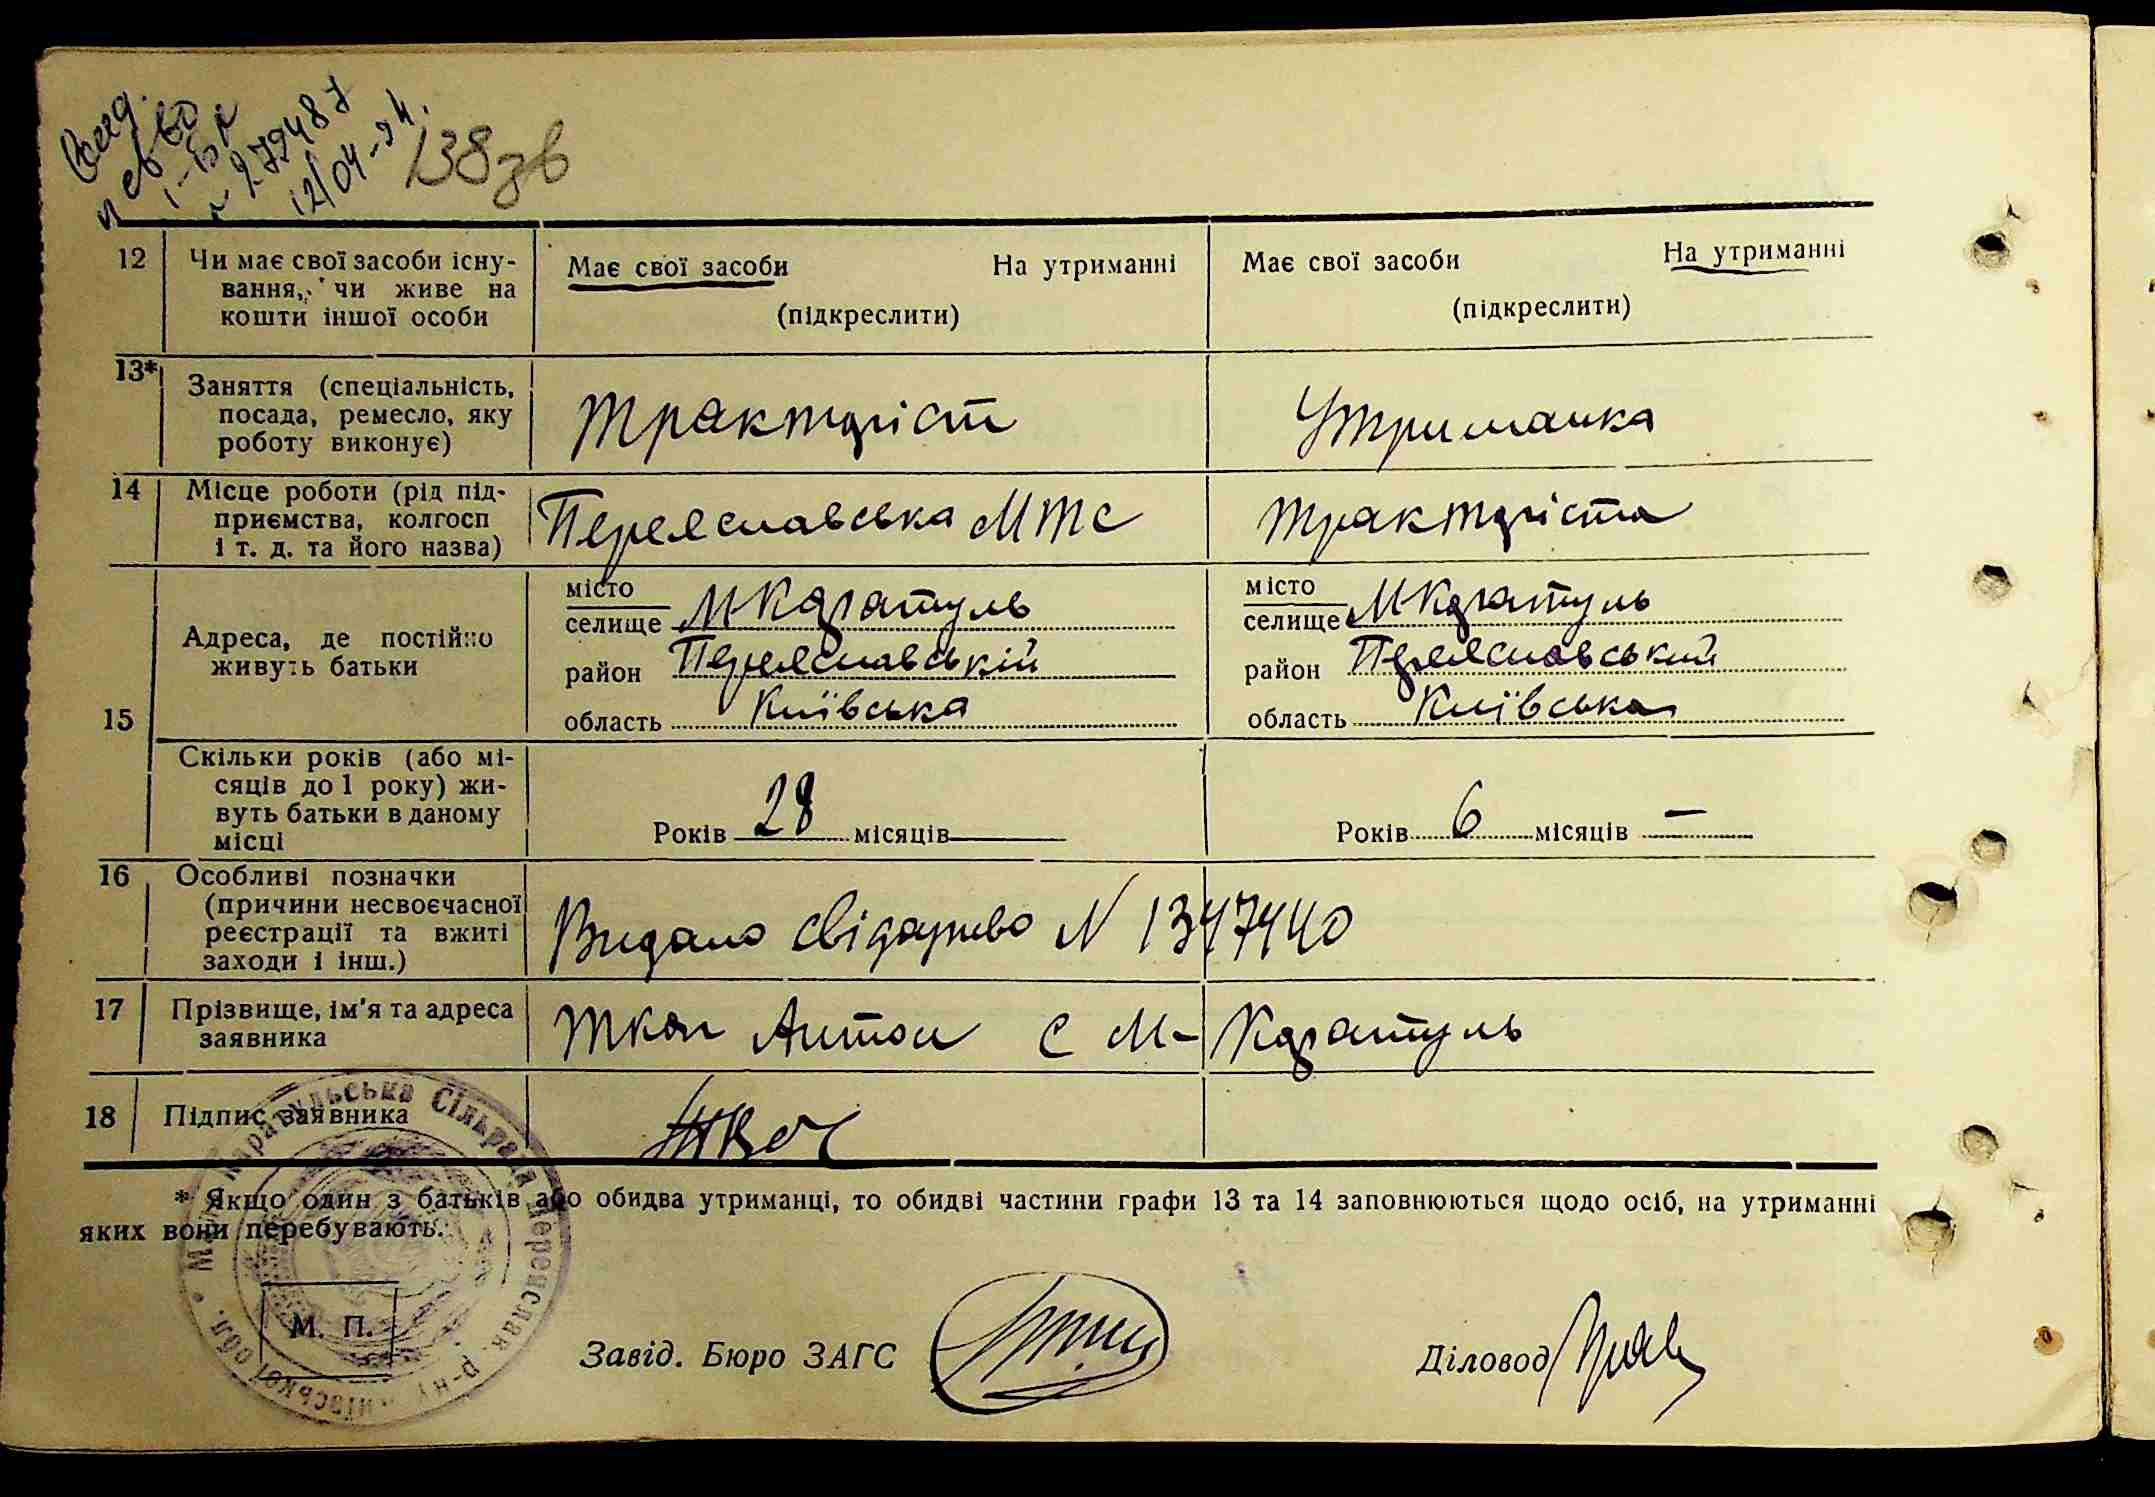 279487
12/04-94.
138зв
12 Чи має свої засоби існу-
вання, чи живе на
кошти іншої особи
Має свої засоби На утриманні
(підкреслити)
Має свої засоби На утриманні
(підкреслити)
13* Заняття (спеціальність,
посада, ремесло, яку
роботу виконує)
Тракторіст
Утриманка
14 Місце роботи (рід під-
приємства, колгосп
і т. д. та його назва)
Переяславська МТС
Тракторіста
15
Адреса, де постійно
живуть батьки
місто
селище МКаратуль
район Переяславській
область Київська
місто
селище МКаратуль
район Переяславський
область Київська
Скільки років (або мі-
сяців до 1 року) жи-
вуть батьки в даному
місці
Років 28 місяців
Років 6 місяців —
16 Особливі позначки
(причини несвоєчасної
реєстрації та вжиті
заходи і інш.)
Видано свідоцтво N 1347440
17 Прізвище, ім'я та адреса
заявника
Ткач Антон с М-Каратуль
18 Підпис заявника
Ткач
* Якщо один з батьків або обидва утриманці, то обидві частини графи 13 та 14 заповнюються щодо осіб, на утриманні
яких вони перебувають.
М. П.
Завід. Бюро ЗАГС
Діловод